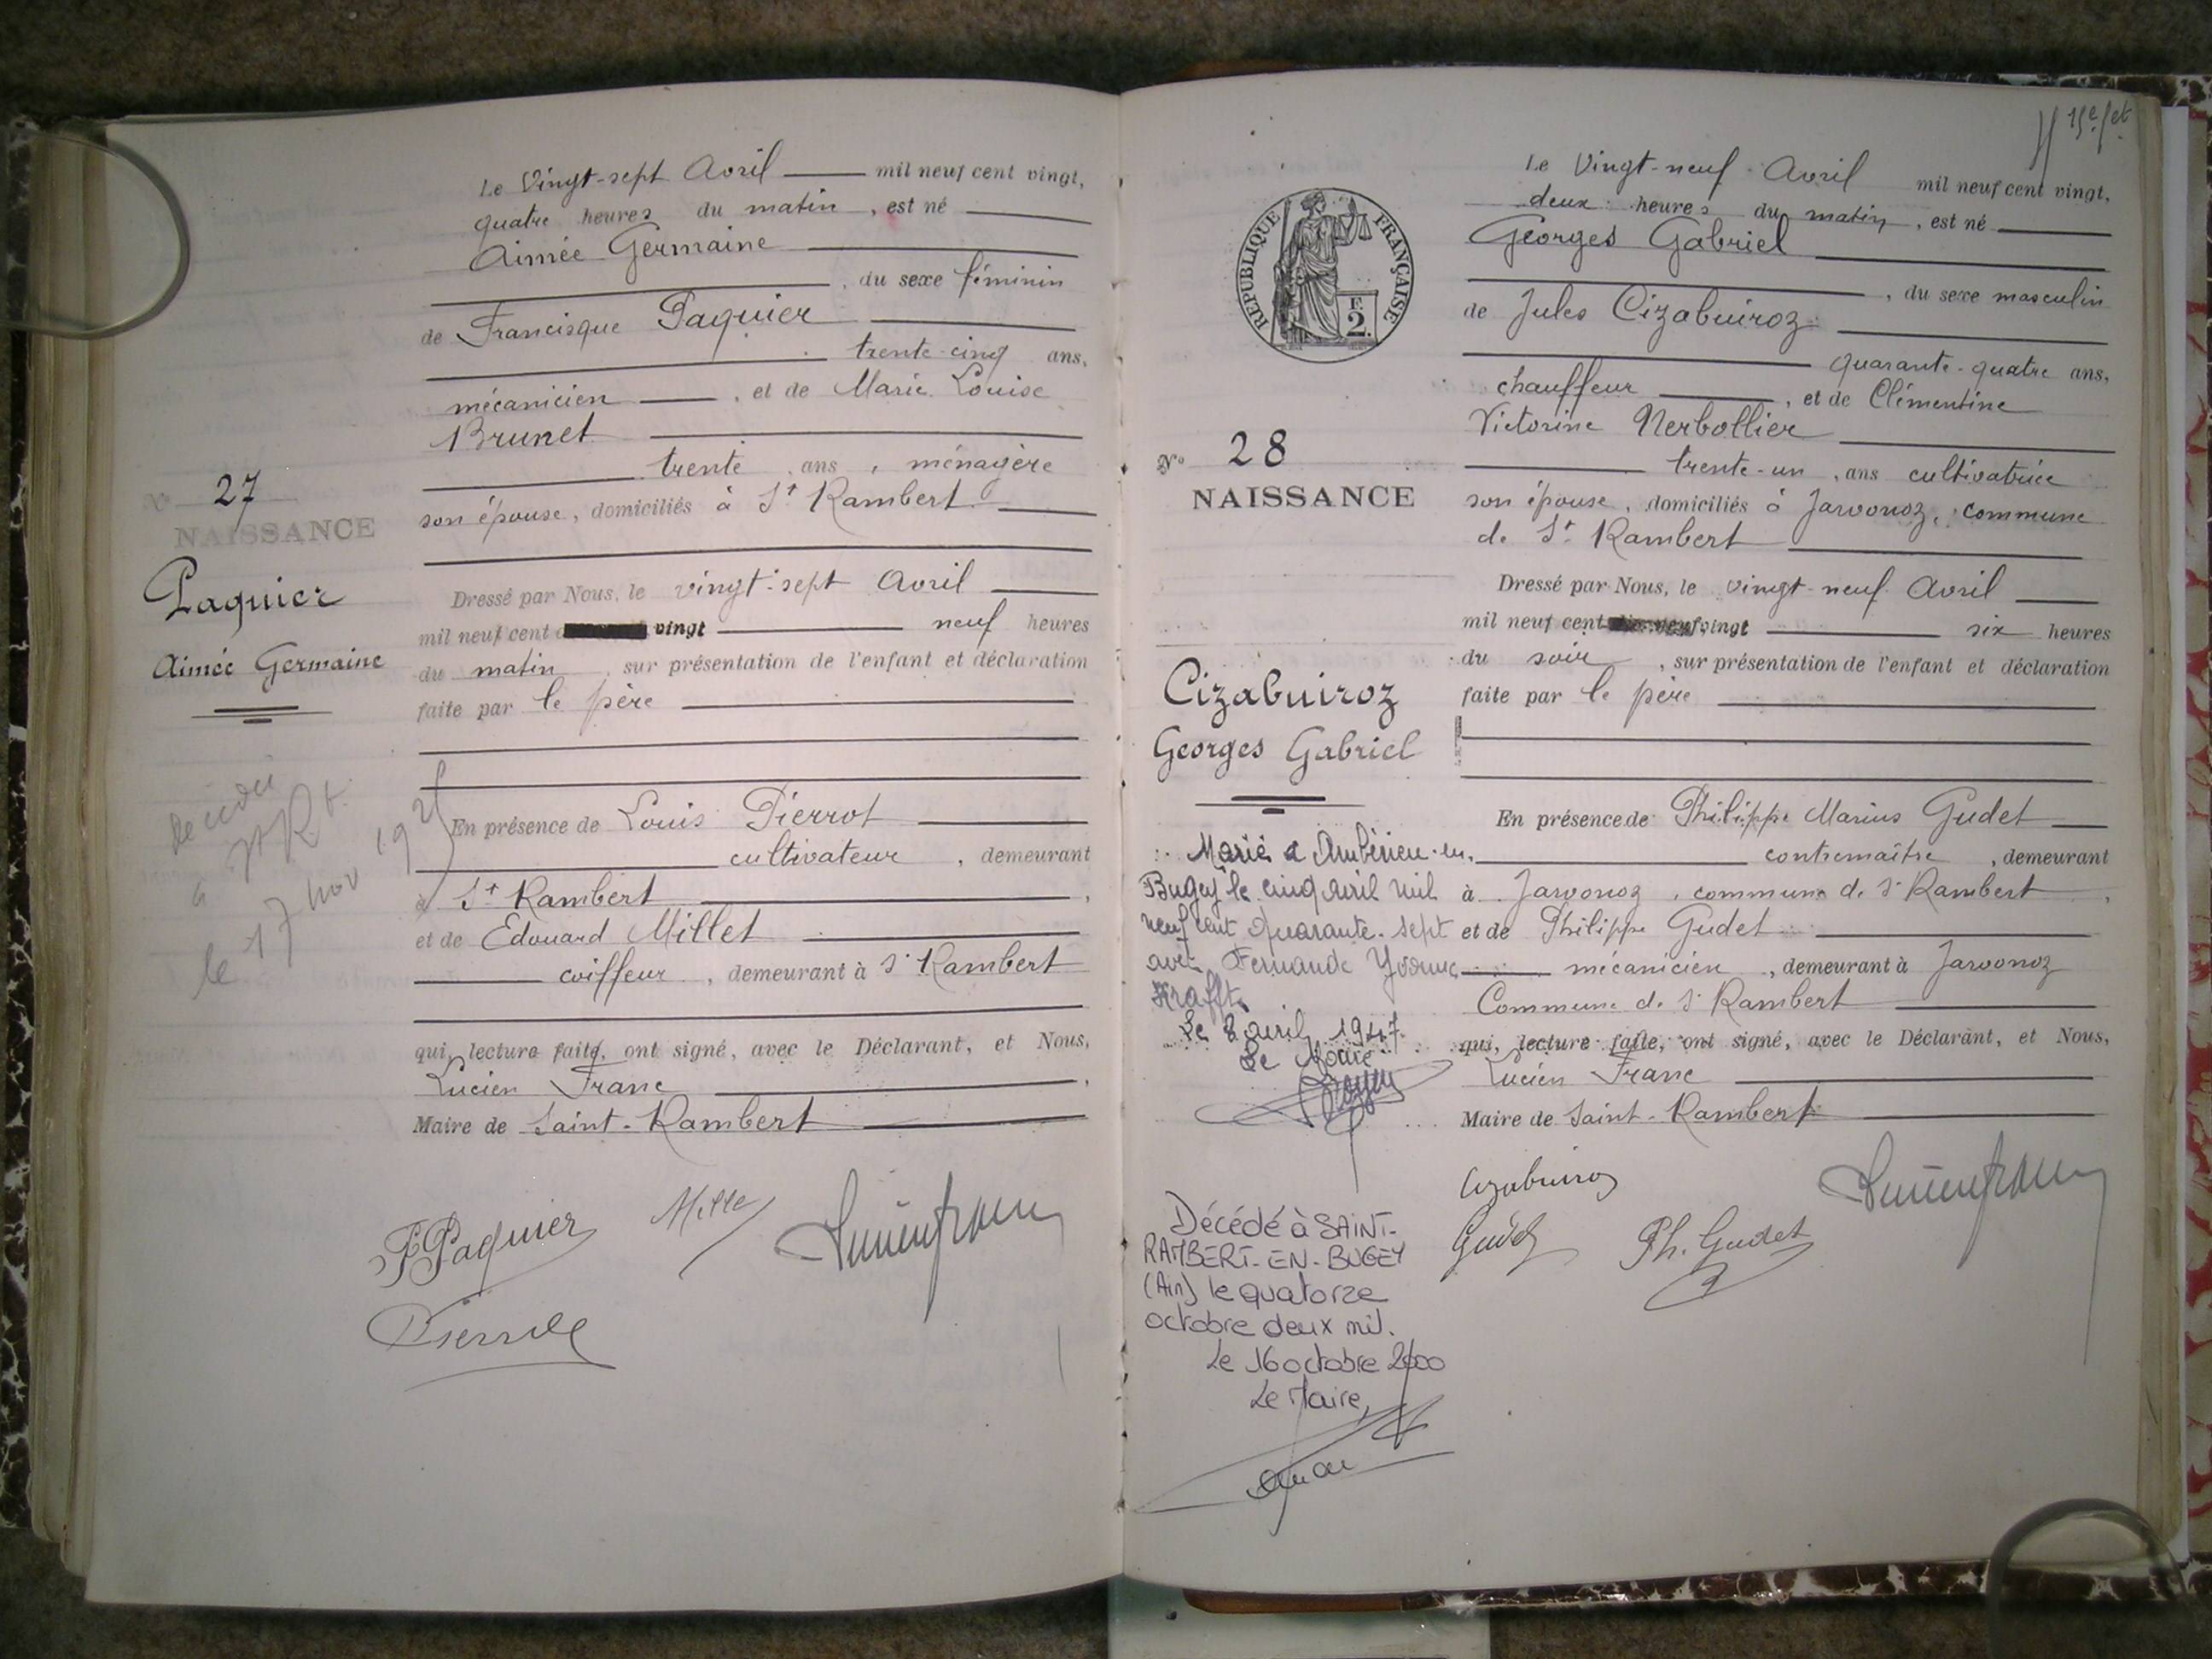 Le Vingt-sept Avril mil neuf cent vingt,
quatre heures du matin, est né
Aimée Germaine
, du sexe féminin
de Francisque Paquier
trente-cinq ans,
mécanicien, et de Marie Louise
Brunet
trente ans, ménagère
son épouse, domiciliés à St Rambert
N° 27
NAISSANCE
Paquier
Aimée Germaine
Dressé par Nous, le vingt-sept Avril
mil neuf cent vingt neuf heures
du matin, sur présentation de l'enfant et déclaration
faite par le père
décédée
à St Rt
le 17 nov 192
En présence de Louis Pierrot
cultivateur, demeurant
à St Rambert,
et de Edouard Millet
coiffeur, demeurant à St Rambert
qui, lecture faite, ont signé, avec le Déclarant, et Nous,
Lucien Franc,
Maire de Saint-Rambert
F Paquier
Millet
Lucien Franc
Pierrot
15e f et
Le Vingt-neuf Avril mil neuf cent vingt,
deux heures du matin, est né
Georges Gabriel
, du sexe masculin
de Jules Cizabuiroz
quarante-quatre ans,
chauffeur, et de Clémentine
Victorine Nerbollier
trente-un, ans cultivatrice
son épouse, domiciliés à Javornoz, commune
de St Rambert
RÉPUBLIQUE FRANÇAISE
F.
2.
N° 28
NAISSANCE
Cizabuiroz
Georges Gabriel
Dressé par Nous, le vingt-neuf Avril
mil neuf cent dix-neuf vingt six heures
du soir, sur présentation de l'enfant et déclaration
faite par le père
En présence de Philippe Marius Gudet
contremaître, demeurant
à Javornoz, commune de St Rambert,
et de Philippe Gudet
mécanicien, demeurant à Javornoz
Commune de St Rambert
qui, lecture faite, ont signé, avec le Déclarant, et Nous,
Lucien Franc
Maire de Saint-Rambert
Marié à Ambérieu-en-
Bugey le cinq avril mil
neuf cent quarante-sept
avec Fernande Yvonne
Krafft.
Le 8 avril 1947.
Le Maire
Cizabuiroz
Gudet
Ph. Gudet
Lucien Franc
Décédé à SAINT-
RAMBERT-EN-BUGEY
(Ain) le quatorze
octobre deux mil.
Le 16 octobre 2000
Le Maire,